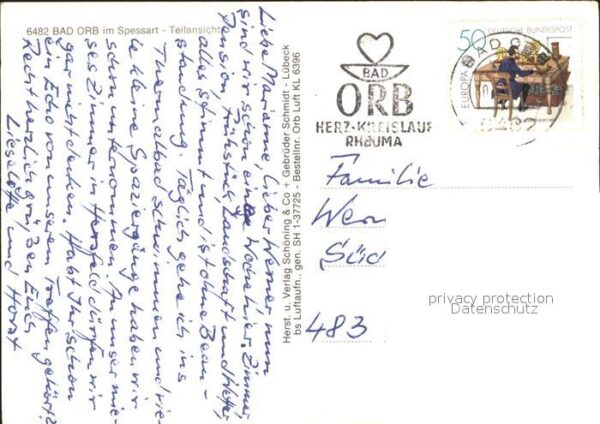 6482 BAD ORB im Spessart - Teilansicht
Liebe Marianne, lieber Werner, nun
sind wir schon eine Woche hier. Zimmer,
Pension, Frühstück, Landschaft und Wetter,
alles stimmt und ist ohne Bean-
standung. Täglich gehe ich ins
Thermalbad schwimmen und vie-
le kleine Spaziergänge haben wir
schon unternommen. An unser mie-
ses Zimmer in Hersfeld dürfen wir
gar nicht denken. Habt Ihr schon
ein Echo von unserem Treffen gehört?
Recht herzlich grüßen Euch
Lieselotte und Horst
Herst. u. Verlag Schöning & Co + Gebrüder Schmidt - Lübeck
bs Luftaufn., gen. SH 1-37725 - Bestellnr. Orb Luft KL 6396
BAD
ORB
HERZ-KREISLAUF
RHEUMA
50 DEUTSCHE BUNDESPOST
EUROPA
BAD ORB
6482
Familie
Wern
Süd
483
privacy protection
Datenschutz